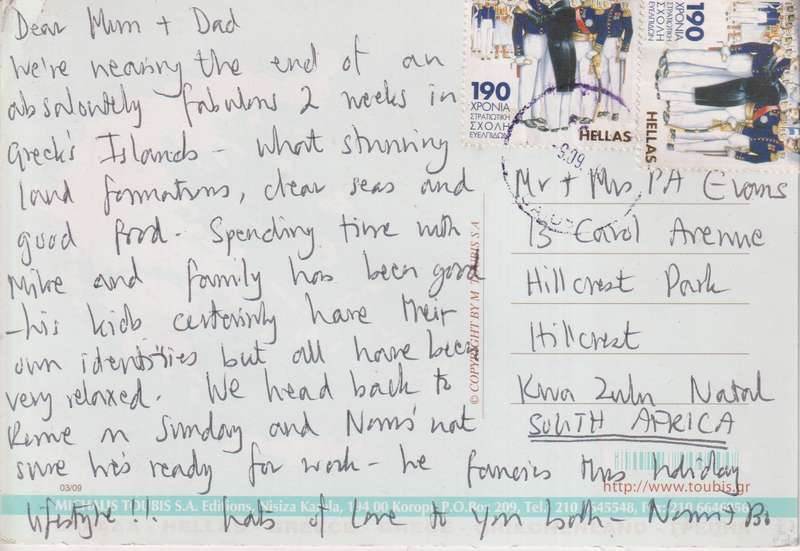 Dear Mum + Dad
We're nearing the end of an
absaloutely fabulous 2 weeks in
Greek's Islands - what stunning
land formations, clear seas and
good food - Spending time with
Mike and family has been good
- his kids certainly have their
own identities but all have been
very relaxed. We head back to
Rome on Sunday and Norm's not
sure he's ready for work - he fancies this holiday
lifestyle !!! hats of love to you both - Norm + Bo
190
ΧΡΟΝΙΑ
ΣΤΡΑΤΙΩΤΙΚΗ
ΣΧΟΛΗ
ΕΥΕΛΠΙΔΩΝ
HELLAS
190
ΧΡΟΝΙΑ
ΣΤΡΑΤΙΩΤΙΚΗ
ΣΧΟΛΗ
ΕΥΕΛΠΙΔΩΝ
HELLAS
Mr + Mrs PA Evans
13 Carol Avenue
Hillcrest Park
Hillcrest
Kwa Zulu Natal
SOUTH AFRICA
© COPYRIGHT BY M. TOUBIS S.A
03/09
http://www.toubis.gr
MICHALIS TOUBIS S.A. Editions, Nisiza Karela, 194.00 Koropi, P.O.Box 209, Tel.: 210